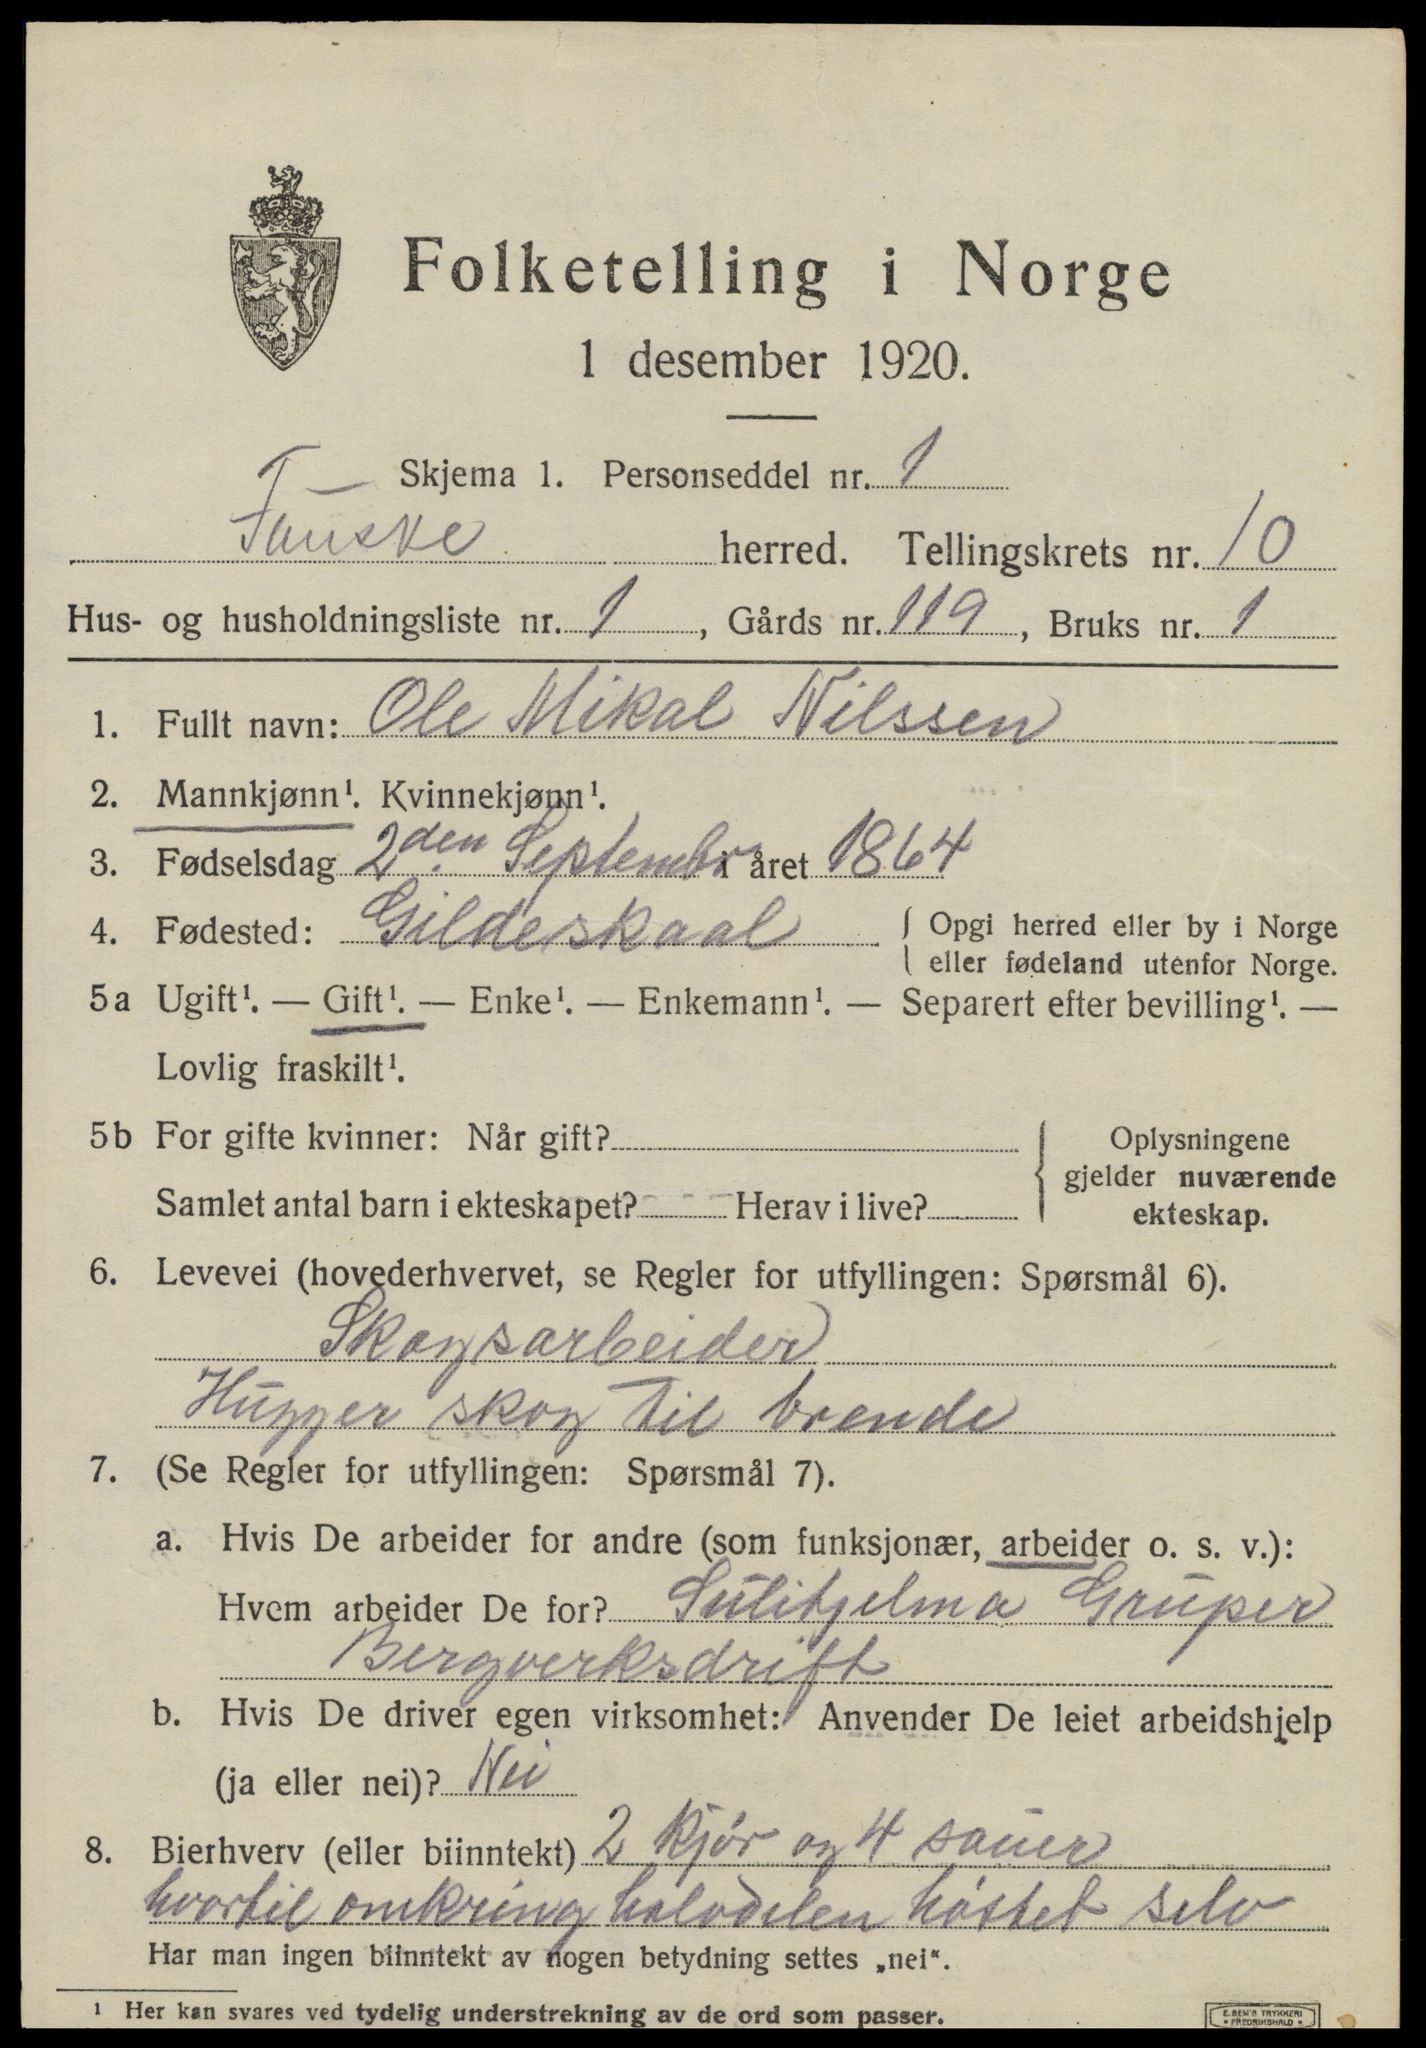 Folketelling i Norge
1 desember 1920.
Skjema 1. Personseddel nr. 1
Fauske herred. Tellingskrets nr. 10
Hus- og husholdningsliste nr. 1, Gårds nr. 119, Bruks nr. 1
1. Fullt navn: Ole Mikal Nilssen
2. Mannkjønn¹. Kvinnekjønn¹.
3. Fødselsdag 2den Septembr i året 1864
4. Fødested: Gildeskaal { Opgi herred eller by i Norge
eller fødeland utenfor Norge.
5a Ugift¹. — Gift¹. — Enke¹. — Enkemann¹. — Separert efter bevilling¹. —
Lovlig fraskilt¹.
5b For gifte kvinner: Når gift? { Oplysningene
gjelder nuværende
Samlet antal barn i ekteskapet? Herav i live? ekteskap.
6. Levevei (hovederhvervet, se Regler for utfyllingen: Spørsmål 6).
Skogsarbeider
Hugger skog til brende
7. (Se Regler for utfyllingen: Spørsmål 7).
a. Hvis De arbeider for andre (som funksjonær, arbeider o. s. v.):
Hvem arbeider De for? Sulitjelma Gruper
Bergverksdrift
b. Hvis De driver egen virksomhet: Anvender De leiet arbeidshjelp
(ja eller nei)? Nei
8. Bierhverv (eller biinntekt) 2 kjør og 4 sauer
hvortil omkring halvdelen høstet selv
Har man ingen biinntekt av nogen betydning settes „nei“.
¹ Her kan svares ved tydelig understrekning av de ord som passer.
E. SEM'S TRYKKERI
• FREDRIKSHALD •